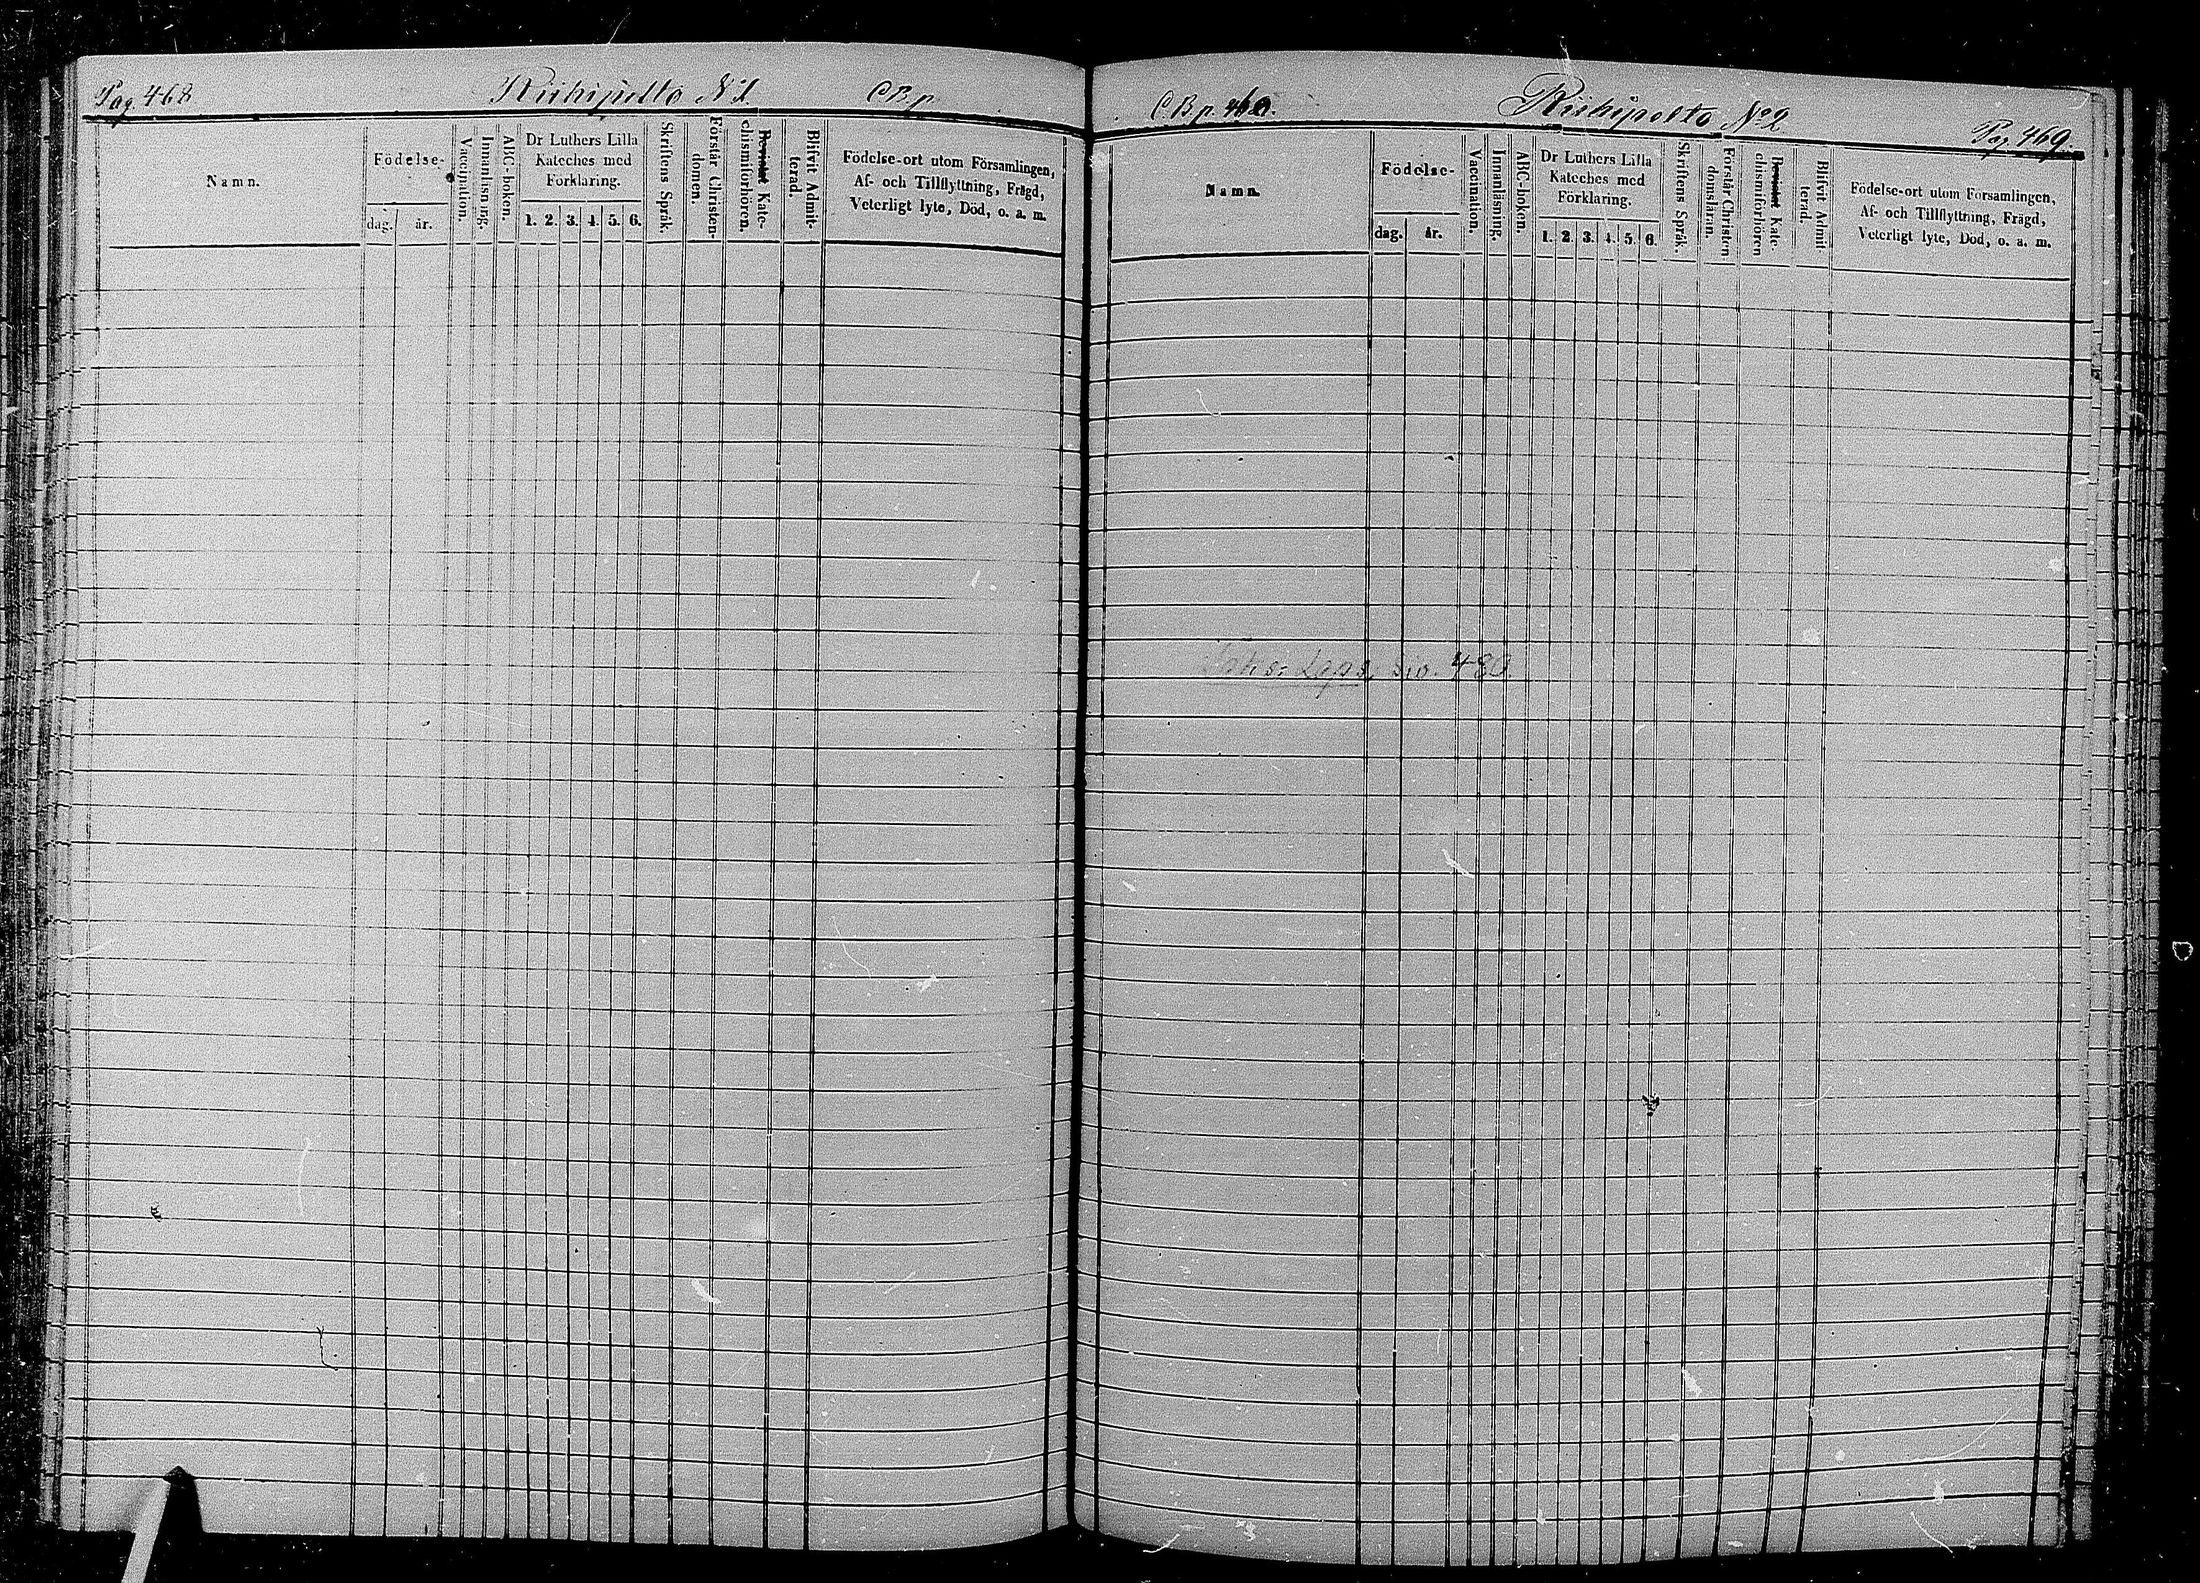 Pag 468 Riihipelto N:1 C.B.p.
Namn.
Födelse-
dag. år.
Vaccination.
Innanläsning.
ABC-boken.
Dr Luthers Lilla
Kateches med
Förklaring.
1. 2. 3. 4. 5. 6.
Skriftens Språk.
Förstår Christen-
domen.
Kate-
chismiförhören.
Blifvit Admit-
terad.
Födelse-ort utom Församlingen,
Af- och Tillflyttning, Frägd,
Veterligt lyte, Död, o. a. m.
C.B.p. Riihipelto No 2 Pag. 469.
Namn.
Födelse-
dag. år.
Vaccination.
Innanläsning.
ABC-boken.
Dr Luthers Lilla
Kateches med
Förklaring.
1. 2. 3. 4. 5. 6.
Skriftens Språk.
Förstår Christen
domsläran.
Kate-
chismiförhören
Blifvit Admit-
terad.
Födelse-ort utom Församlingen,
Af- och Tillflyttning, Frägd,
Veterligt lyte, Död, o. a. m.
siv. 480